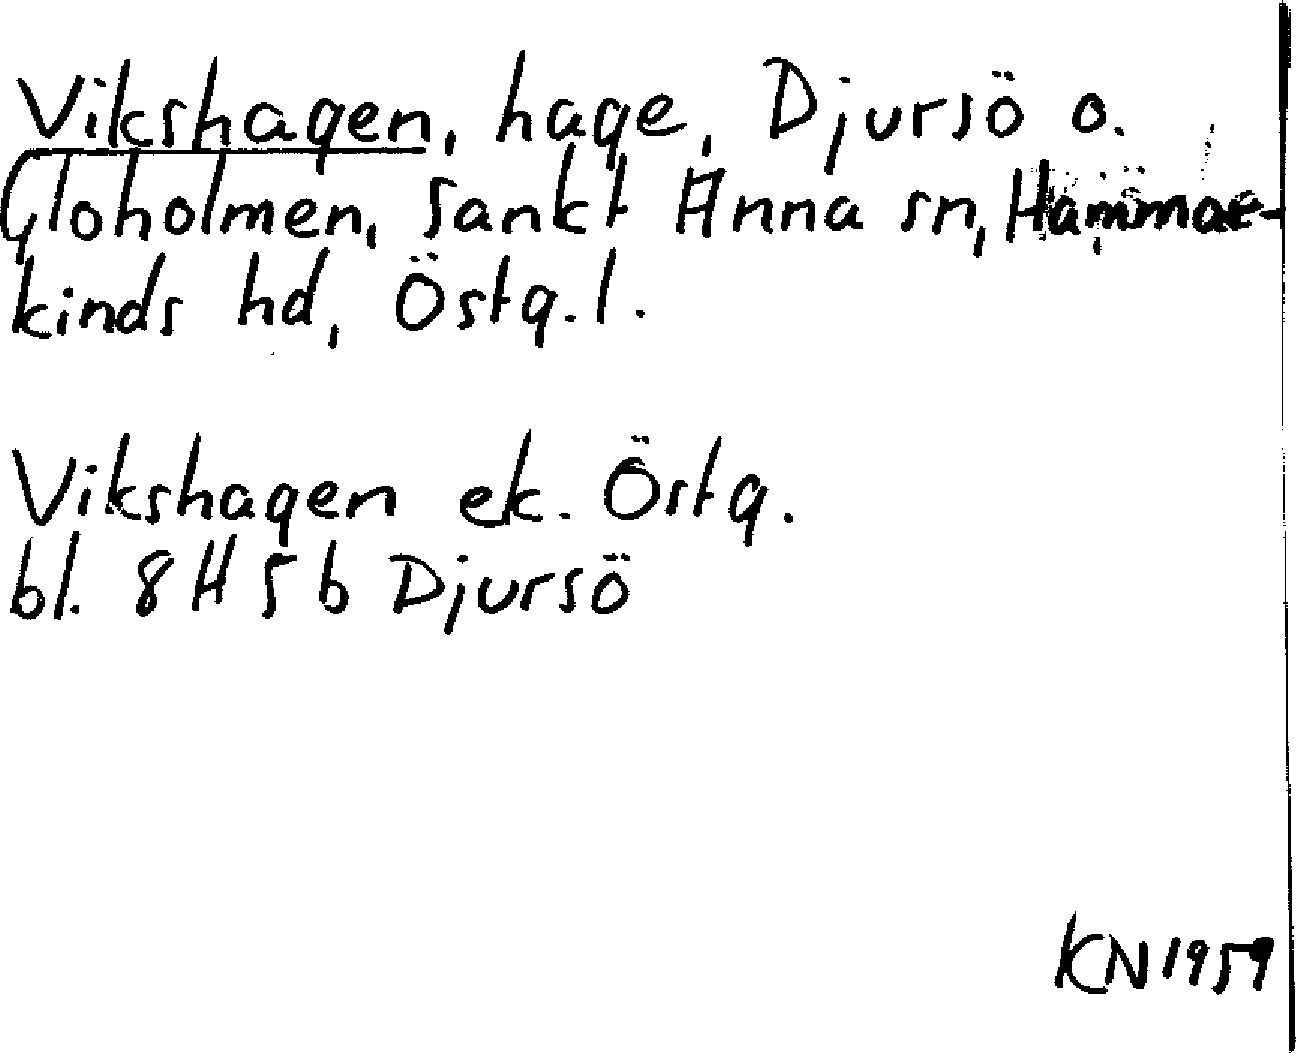 Vikshagen, hage, Djursö o.
Gloholmen, Sankt Anna sn, Hammar-
kinds hd, Östg. l.
Vikshagen ek. Östg.
bl. 8H 5b Djursö
KN 1959